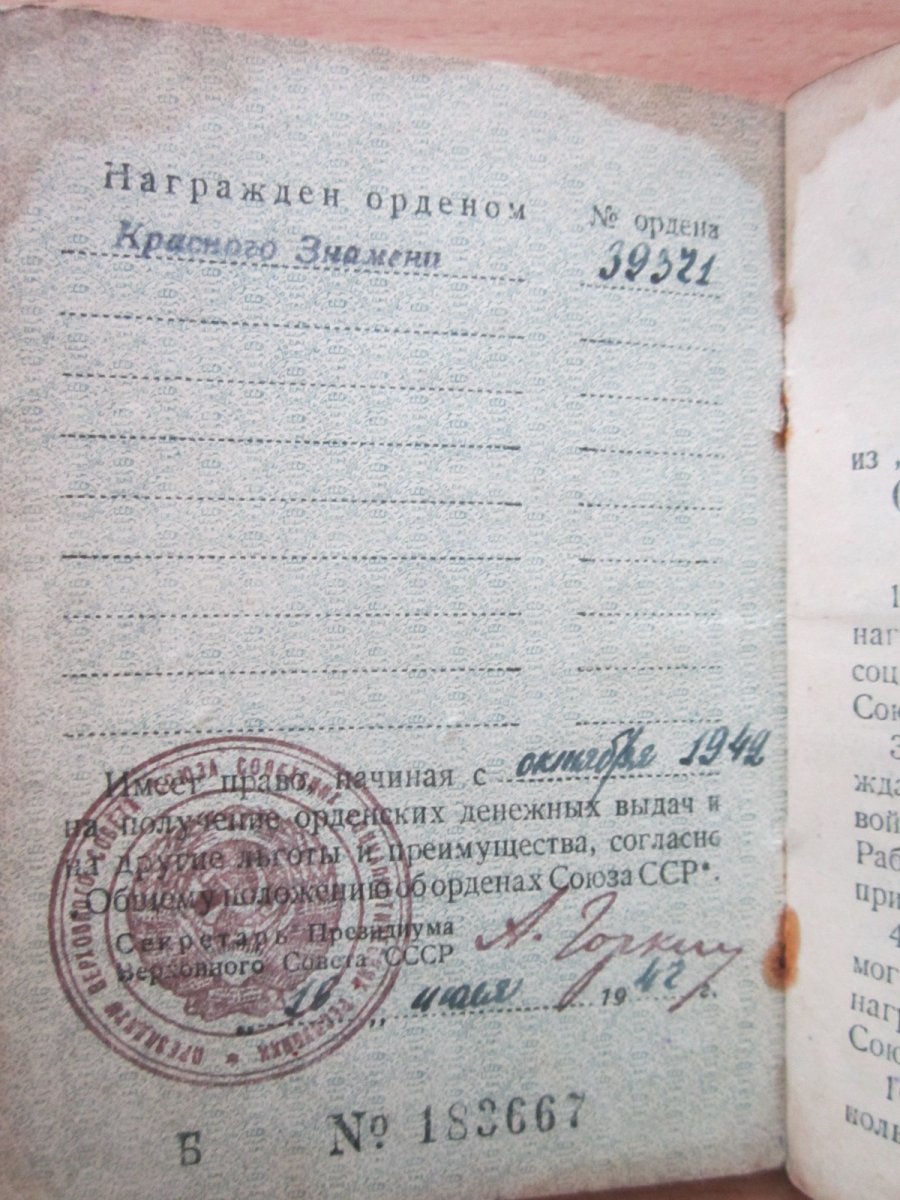 Награжден орденом
№ ордена
Красного Знамени
39371
Имеет право, начиная с октября 1942
на получение орденских денежных выдач и
на другие льготы и преимущества, согласно
Общему положению об орденах Союза ССР*.
Секретарь Президиума
Верховного Совета СССР
А. Горкин
„16 „ 1942 г.
Б № 183667
ПРЕЗИДИУМ ВЕРХОВНОГО СОВЕТА СОЮЗА СОВЕТСКИХ
из „
1
наг
соц
Сою
З
жда
вой
Раб
при
4
мог
нагр
Сою
коль